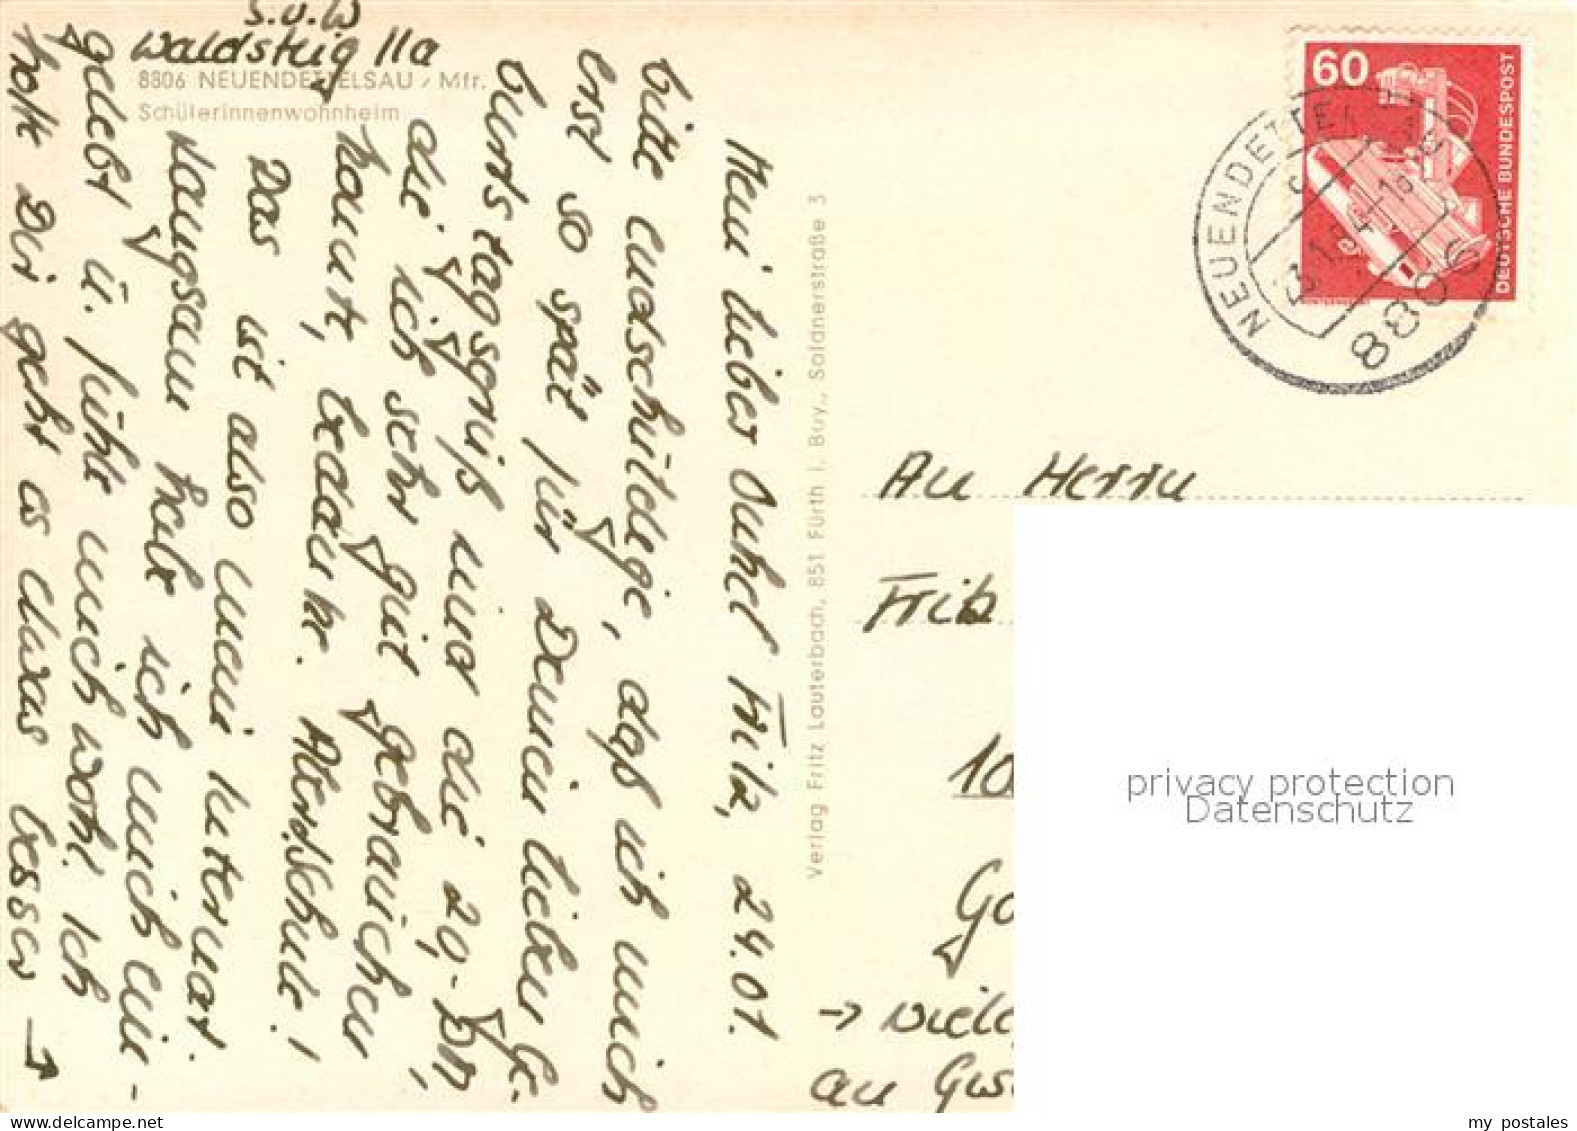 S. u. W
Waldsteig 11a
8806 NEUENDETTELSAU / Mfr.
Schülerinnenwohnheim
Mein lieber Onkel Fritz, 24.01.
bitte entschuldige, daß ich mich
erst so spät für Deinen lieben Ge-
burtstagsgruß und die 20,-DM,
die ich sehr gut gebrauchen
konnte, bedanke. Altersschule!
Das ist also meine
Langsam habe ich mich ein-
gelebt u. fühle mich wohl. Ich
hoffe Dir geht es etwas besser →
Verlag Fritz Lauterbach, 851 Fürth i. Bay., Soldnerstraße 3
60
DEUTSCHE BUNDESPOST
NEUENDETTELSAU
8806
An Herrn
10
→ viele
an
privacy protection
Datenschutz
my postales